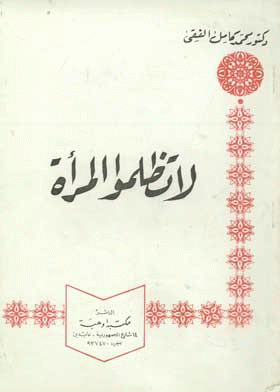 دكتور محمد كامل الفقى
لا تظلموا المرأة
الناشر
مكتبة وهبة
١٤ شارع الجمهورية - عابدين
٩٣٧٤٧٠